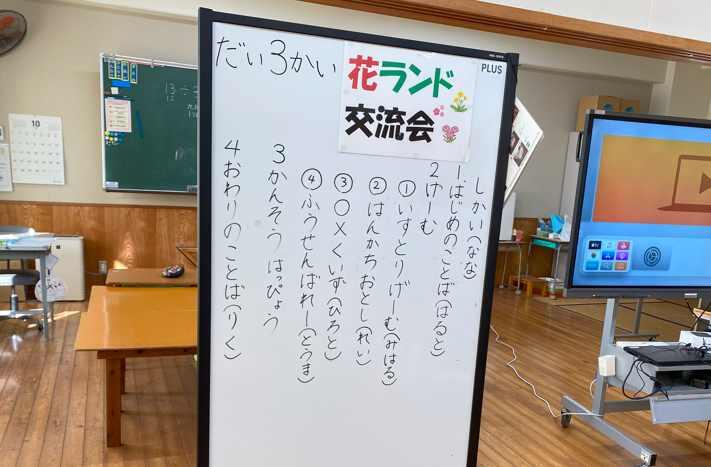 だい3かい
花ランド
交流会
PLUS
しかい(なな)
1.はじめのことば(はると)
2げーむ
①いすとりげーむ(みはる)
②はんかちおとし(れい)
③○×くいず(ひろと)
④ふうせんばれー(とうま)
3かんそうはっぴょう
4おわりのことば(りく)
10
13÷3